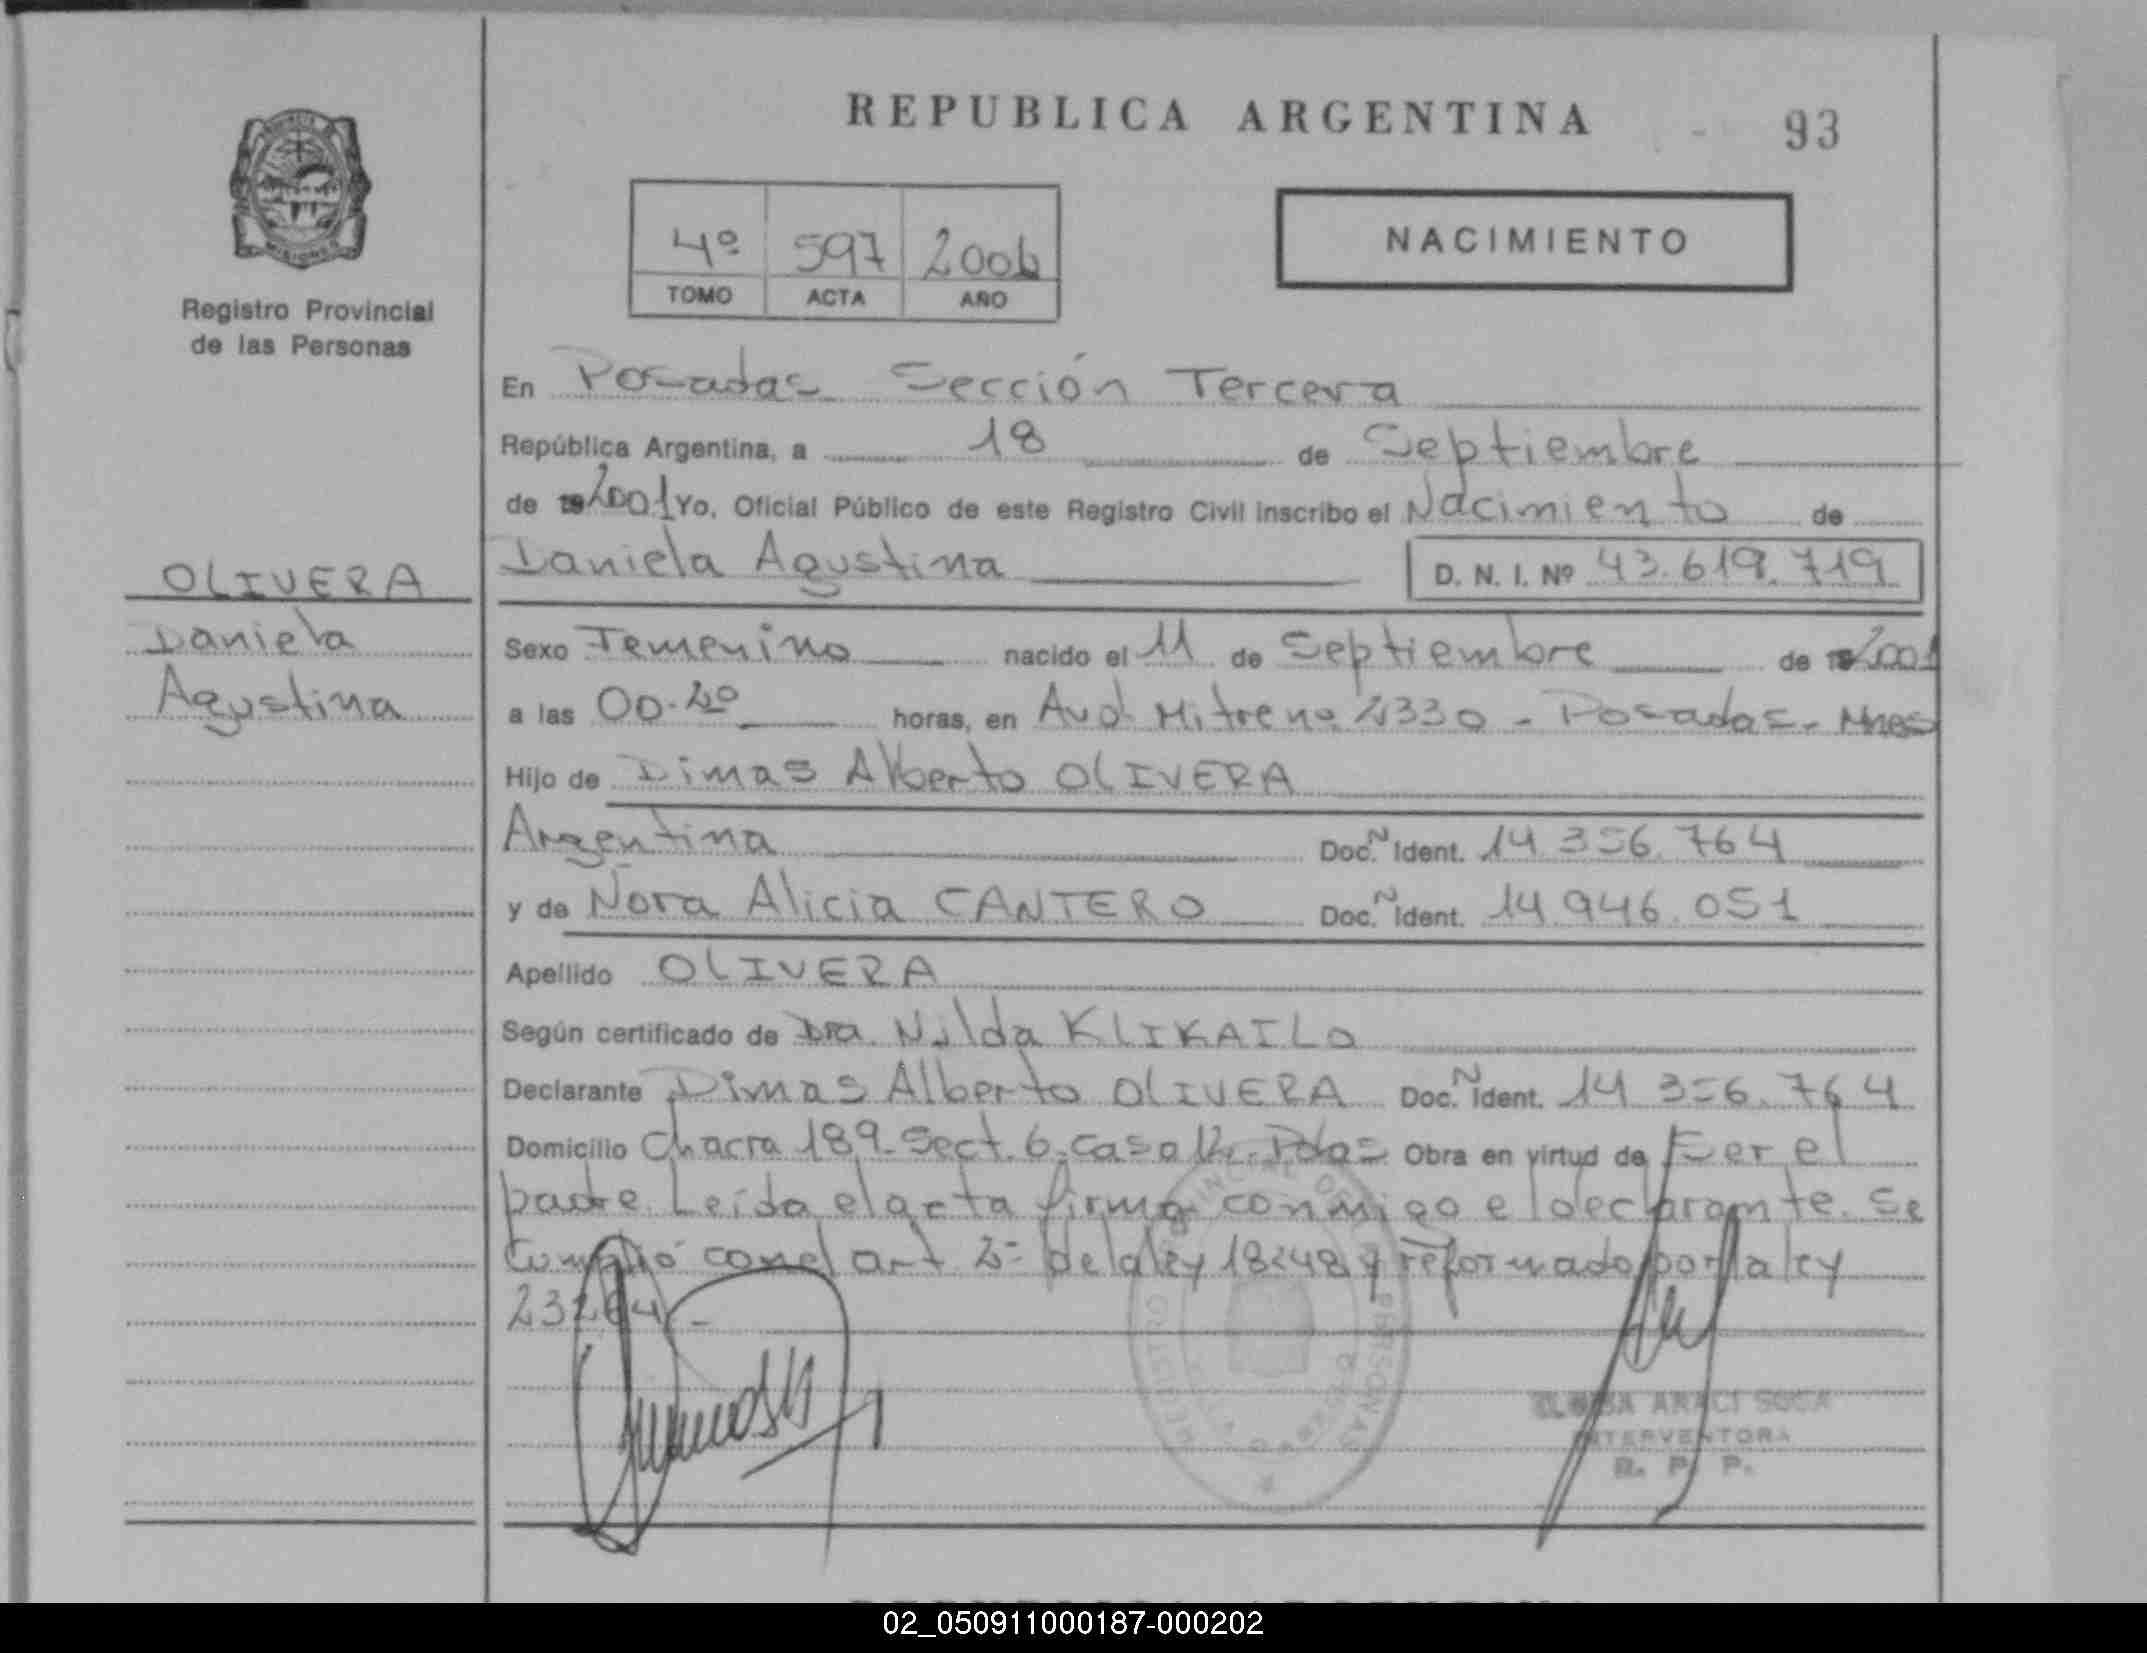 REPUBLICA ARGENTINA
93
4º 597 2001
TOMO ACTA AÑO
NACIMIENTO
Registro Provincial
de las Personas
En Posadas Sección Tercera
República Argentina, a 18 de Septiembre
de 2001 Yo, Oficial Público de este Registro Civil inscribo el Nacimiento de
Daniela Agustina D. N. I. Nº 43.619.719
OLIVERA
Daniela
Agustina
Sexo Femenino nacido el 11 de Septiembre de 2001
a las 00.20 horas, en Avd. Mitre nº 2330 - Posadas - Mnes
Hijo de Dimas Alberto OLIVERA
Argentina Doc. N Ident. 14 356.764
y de Nora Alicia CANTERO Doc. N Ident. 14 946.051
Apellido OLIVERA
Según certificado de Dra. Nilda KLIKAILO
Declarante Dimas Alberto OLIVERA Doc. N Ident. 14 356.764
Domicilio Chacra 189 - Sect. 6 - casa 12 - Pdas Obra en virtud de Ser el
padre. Leída el acta firma conmigo el declarante. Se
Cumplió con el art 2º de la ley 18248 y reformado por la ley
23264 -
REGISTRO PROVINCIAL DE LAS PERSONAS
ARACI SOSA
INTERVENTORA
R. P. P.
02_050911000187-000202